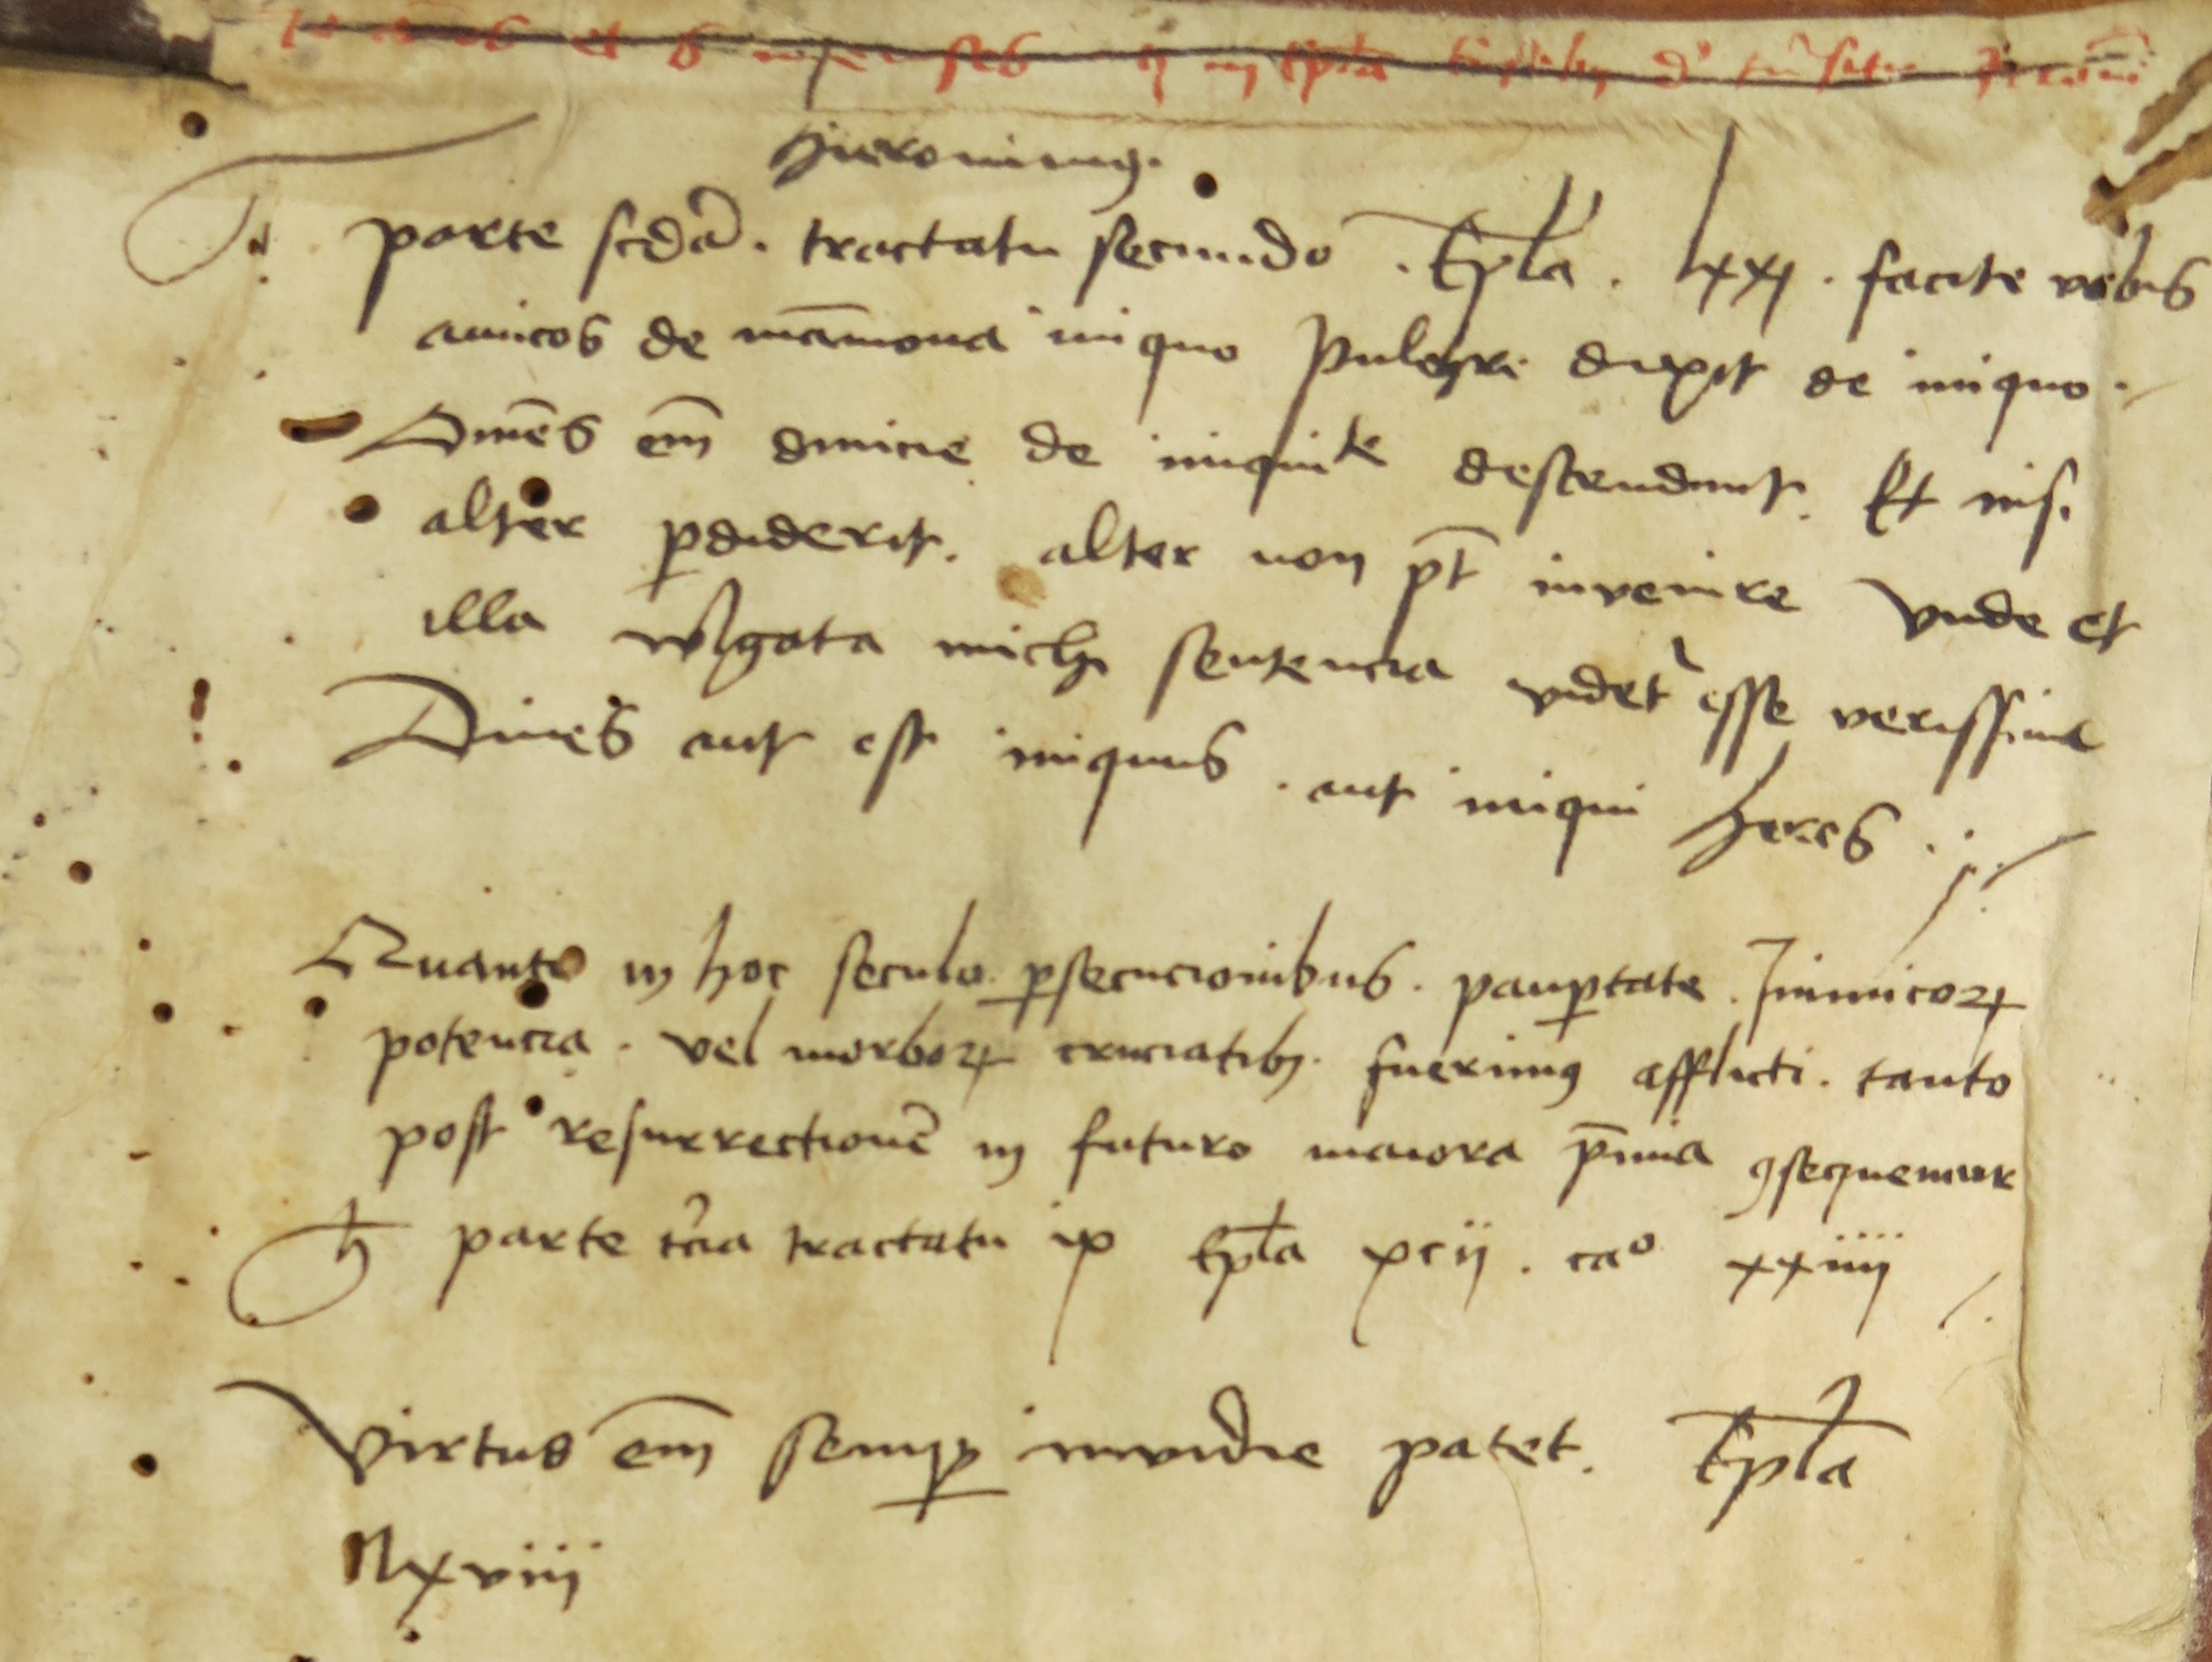 et
Hieronimus.
parte scda. tractatu secundo. Epla. lxxj. facite vobis
amicos de mamona iniquo Pulchre dixit de iniquo.
Omes em diuicie de iniquite descendunt. Et nisi
alter pdiderit. alter non pt invenire Vnde et
illa wlgata michi sentencia videt esse verissima
Diues aut est iniquus. aut iniqui heres.
Quanto in hoc seculo psecucionibus. pauptate. Inimicoꝝ
potencia. vel morboꝝ cruciatibꝫ. fuerimꝰ afflicti. tanto
post resurrectionē in futuro maiora p̄mia ꝯsequemur
parte tcia tractatu ix Epla xcij. caº xxiiij
Virtus em semꝑ invidie patet. Epla
lxxviiij